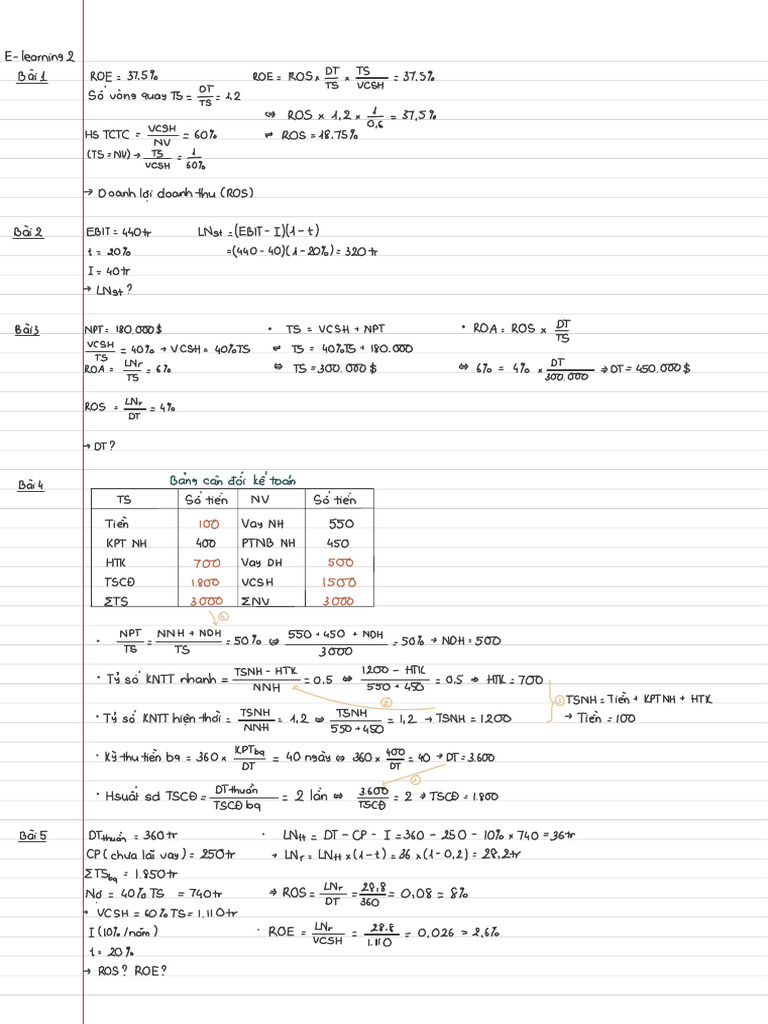 E-learning 2
Bài 1
ROE = 37.5%
ROE = ROS × DT/TS × TS/VCSH = 37,5%
Số vòng quay TS = DT/TS = 1,2
⇔ ROS × 1,2 × 1/0,6 = 37,5%
HS TCTC = VCSH/NV = 60%
⇔ ROS = 18.75%
(TS = NV) → TS/VCSH = 1/60%
→ Doanh lợi doanh thu (ROS)
Bài 2
EBIT = 440tr
LNst = (EBIT - I)(1 - t)
t = 20%
= (440 - 40)(1 - 20%) = 320tr
I = 40tr
→ LNst?
Bài 3
NPT = 180.000$
• TS = VCSH + NPT
• ROA = ROS × DT/TS
VCSH/TS = 40% → VCSH = 40%TS
⇔ TS = 40%TS + 180.000
ROA = LNr/TS = 6%
⇔ TS = 300.000$
⇔ 6% = 4% × DT/300.000 ⇒ DT = 450.000$
ROS = LNr/DT = 4%
→ DT?
Bài 4
Bảng cân đối kế toán
TS Số tiền NV Số tiền
Tiền 100 Vay NH 550
KPT NH 400 PTNB NH 450
HTK 700 Vay DH 500
TSCĐ 1.800 VCSH 1500
ΣTS 3000 ΣNV 3000
④
• NPT/TS = NNH + NDH/TS = 50% ⇔ 550 + 450 + NDH/3000 = 50% → NDH = 500
• Tỷ số KNTT nhanh = TSNH - HTK/NNH = 0.5 ⇔ 1200 - HTK/550 + 450 = 0.5 ⇒ HTK = 700
②
③ TSNH = Tiền + KPTNH + HTK
→ Tiền = 100
• Tỷ số KNTT hiện thời = TSNH/NNH = 1,2 ⇔ TSNH/550 + 450 = 1,2 → TSNH = 1.200
• Kỳ thu tiền bq = 360 × KPTbq/DT = 40 ngày ⇔ 360 × 400/DT = 40 → DT = 3.600
• Hsuất sd TSCĐ = DT thuần/TSCĐ bq = 2 lần ⇔ 3.600/TSCĐ = 2 → TSCĐ = 1.800
Bài 5
DTthuần = 360tr
• LNtt = DT - CP - I = 360 - 250 - 10% × 740 = 36tr
CP (chưa lãi vay) = 250tr
→ LNr = LNtt × (1 - t) = 36 × (1 - 0,2) = 28,2tr
ΣTSbq = 1.850tr
Nợ = 40%TS = 740tr
⇒ ROS = LNr/DT = 28,8/360 = 0,08 = 8%
→ VCSH = 60%TS = 1.110tr
I (10%/năm)
• ROE = LNr/VCSH = 28.8/1.110 = 0,026 = 2,6%
t = 20%
→ ROS? ROE?